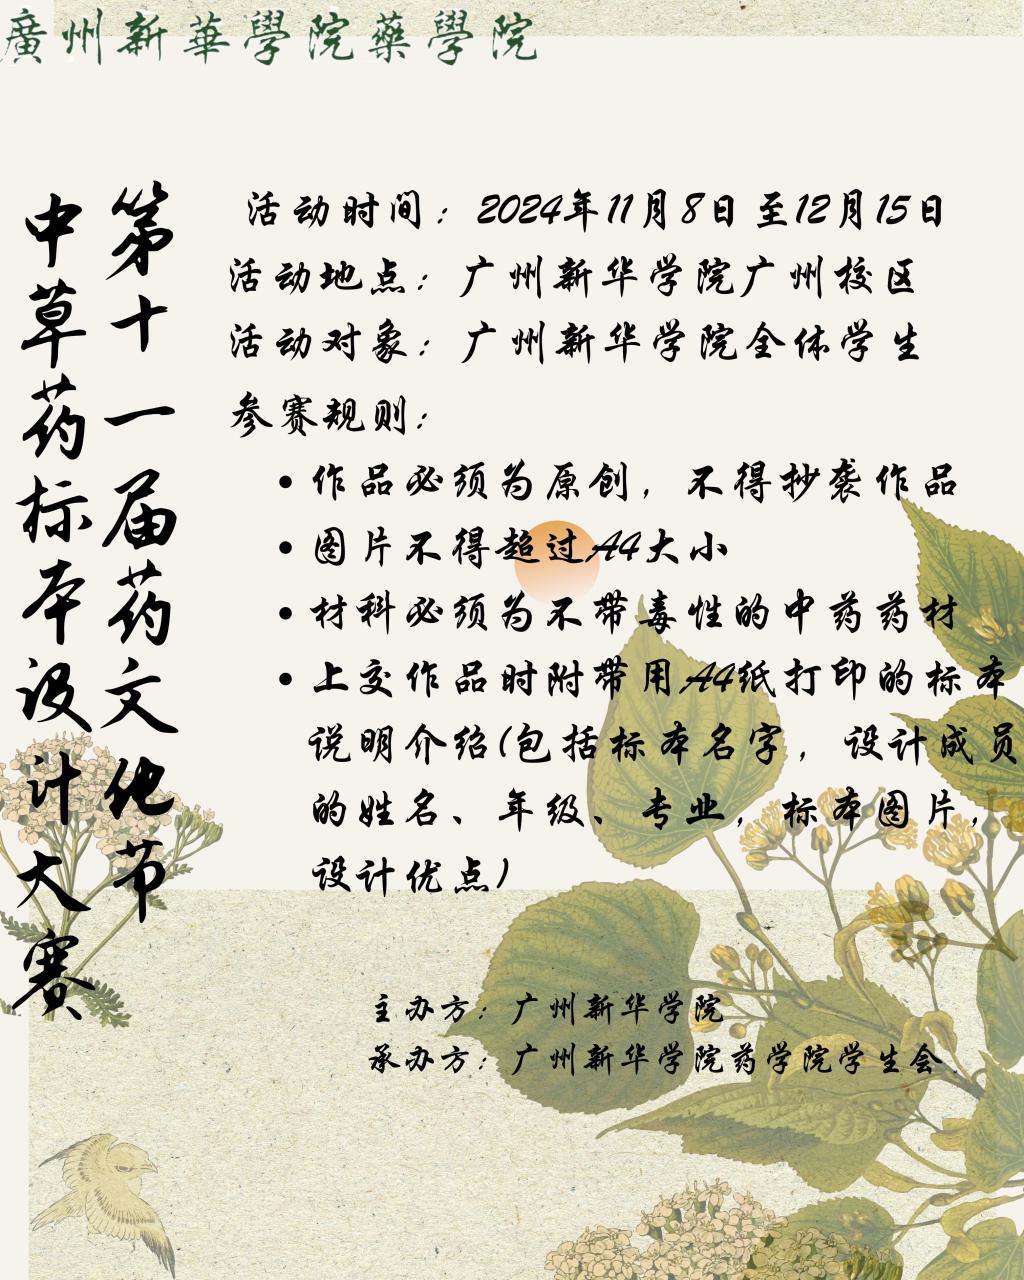 廣州新華學院藥學院
第十一届药文化节
中草药标本设计大赛
活动时间：2024年11月8日至12月15日
活动地点：广州新华学院广州校区
活动对象：广州新华学院全体学生
参赛规则：
• 作品必须为原创，不得抄袭作品
• 图片不得超过A4大小
• 材料必须为不带毒性的中药药材
• 上交作品时附带用A4纸打印的标本
说明介绍(包括标本名字，设计成员
的姓名、年级、专业，标本图片，
设计优点)
主办方：广州新华学院
承办方：广州新华学院药学院学生会